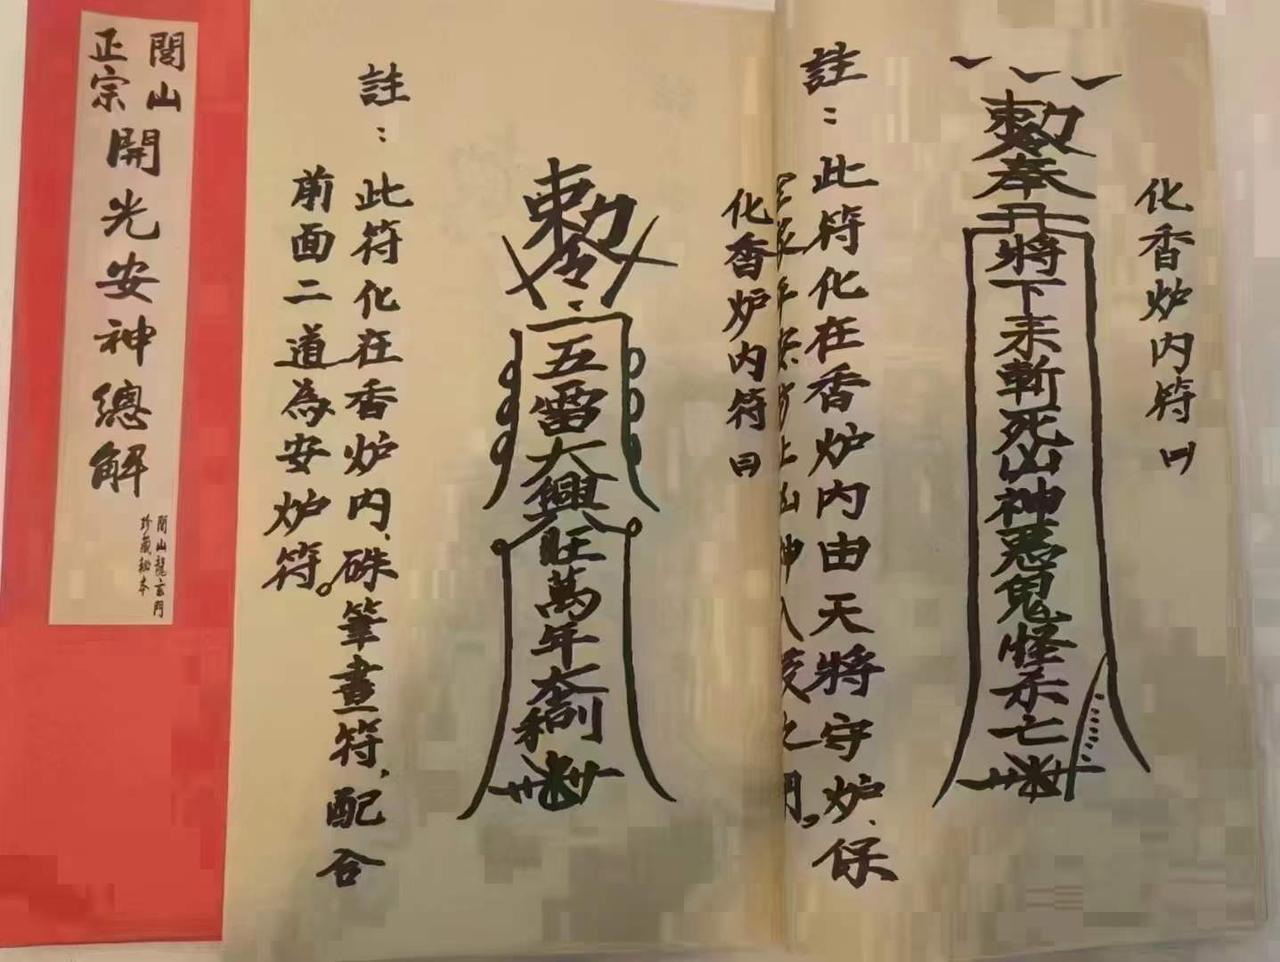 化香炉内符四
敕令奉
天將下來斬死山神惡鬼怪示亡
註：此符化在香炉内由天將守炉、保
化香炉内符曰
敕令
五雷大興旺萬年大利
註：此符化在香炉内、硃筆畫符，配合
前面二道為安炉符。
閭山
正宗
開光安神總解
閭山龍玄門
珍藏秘本